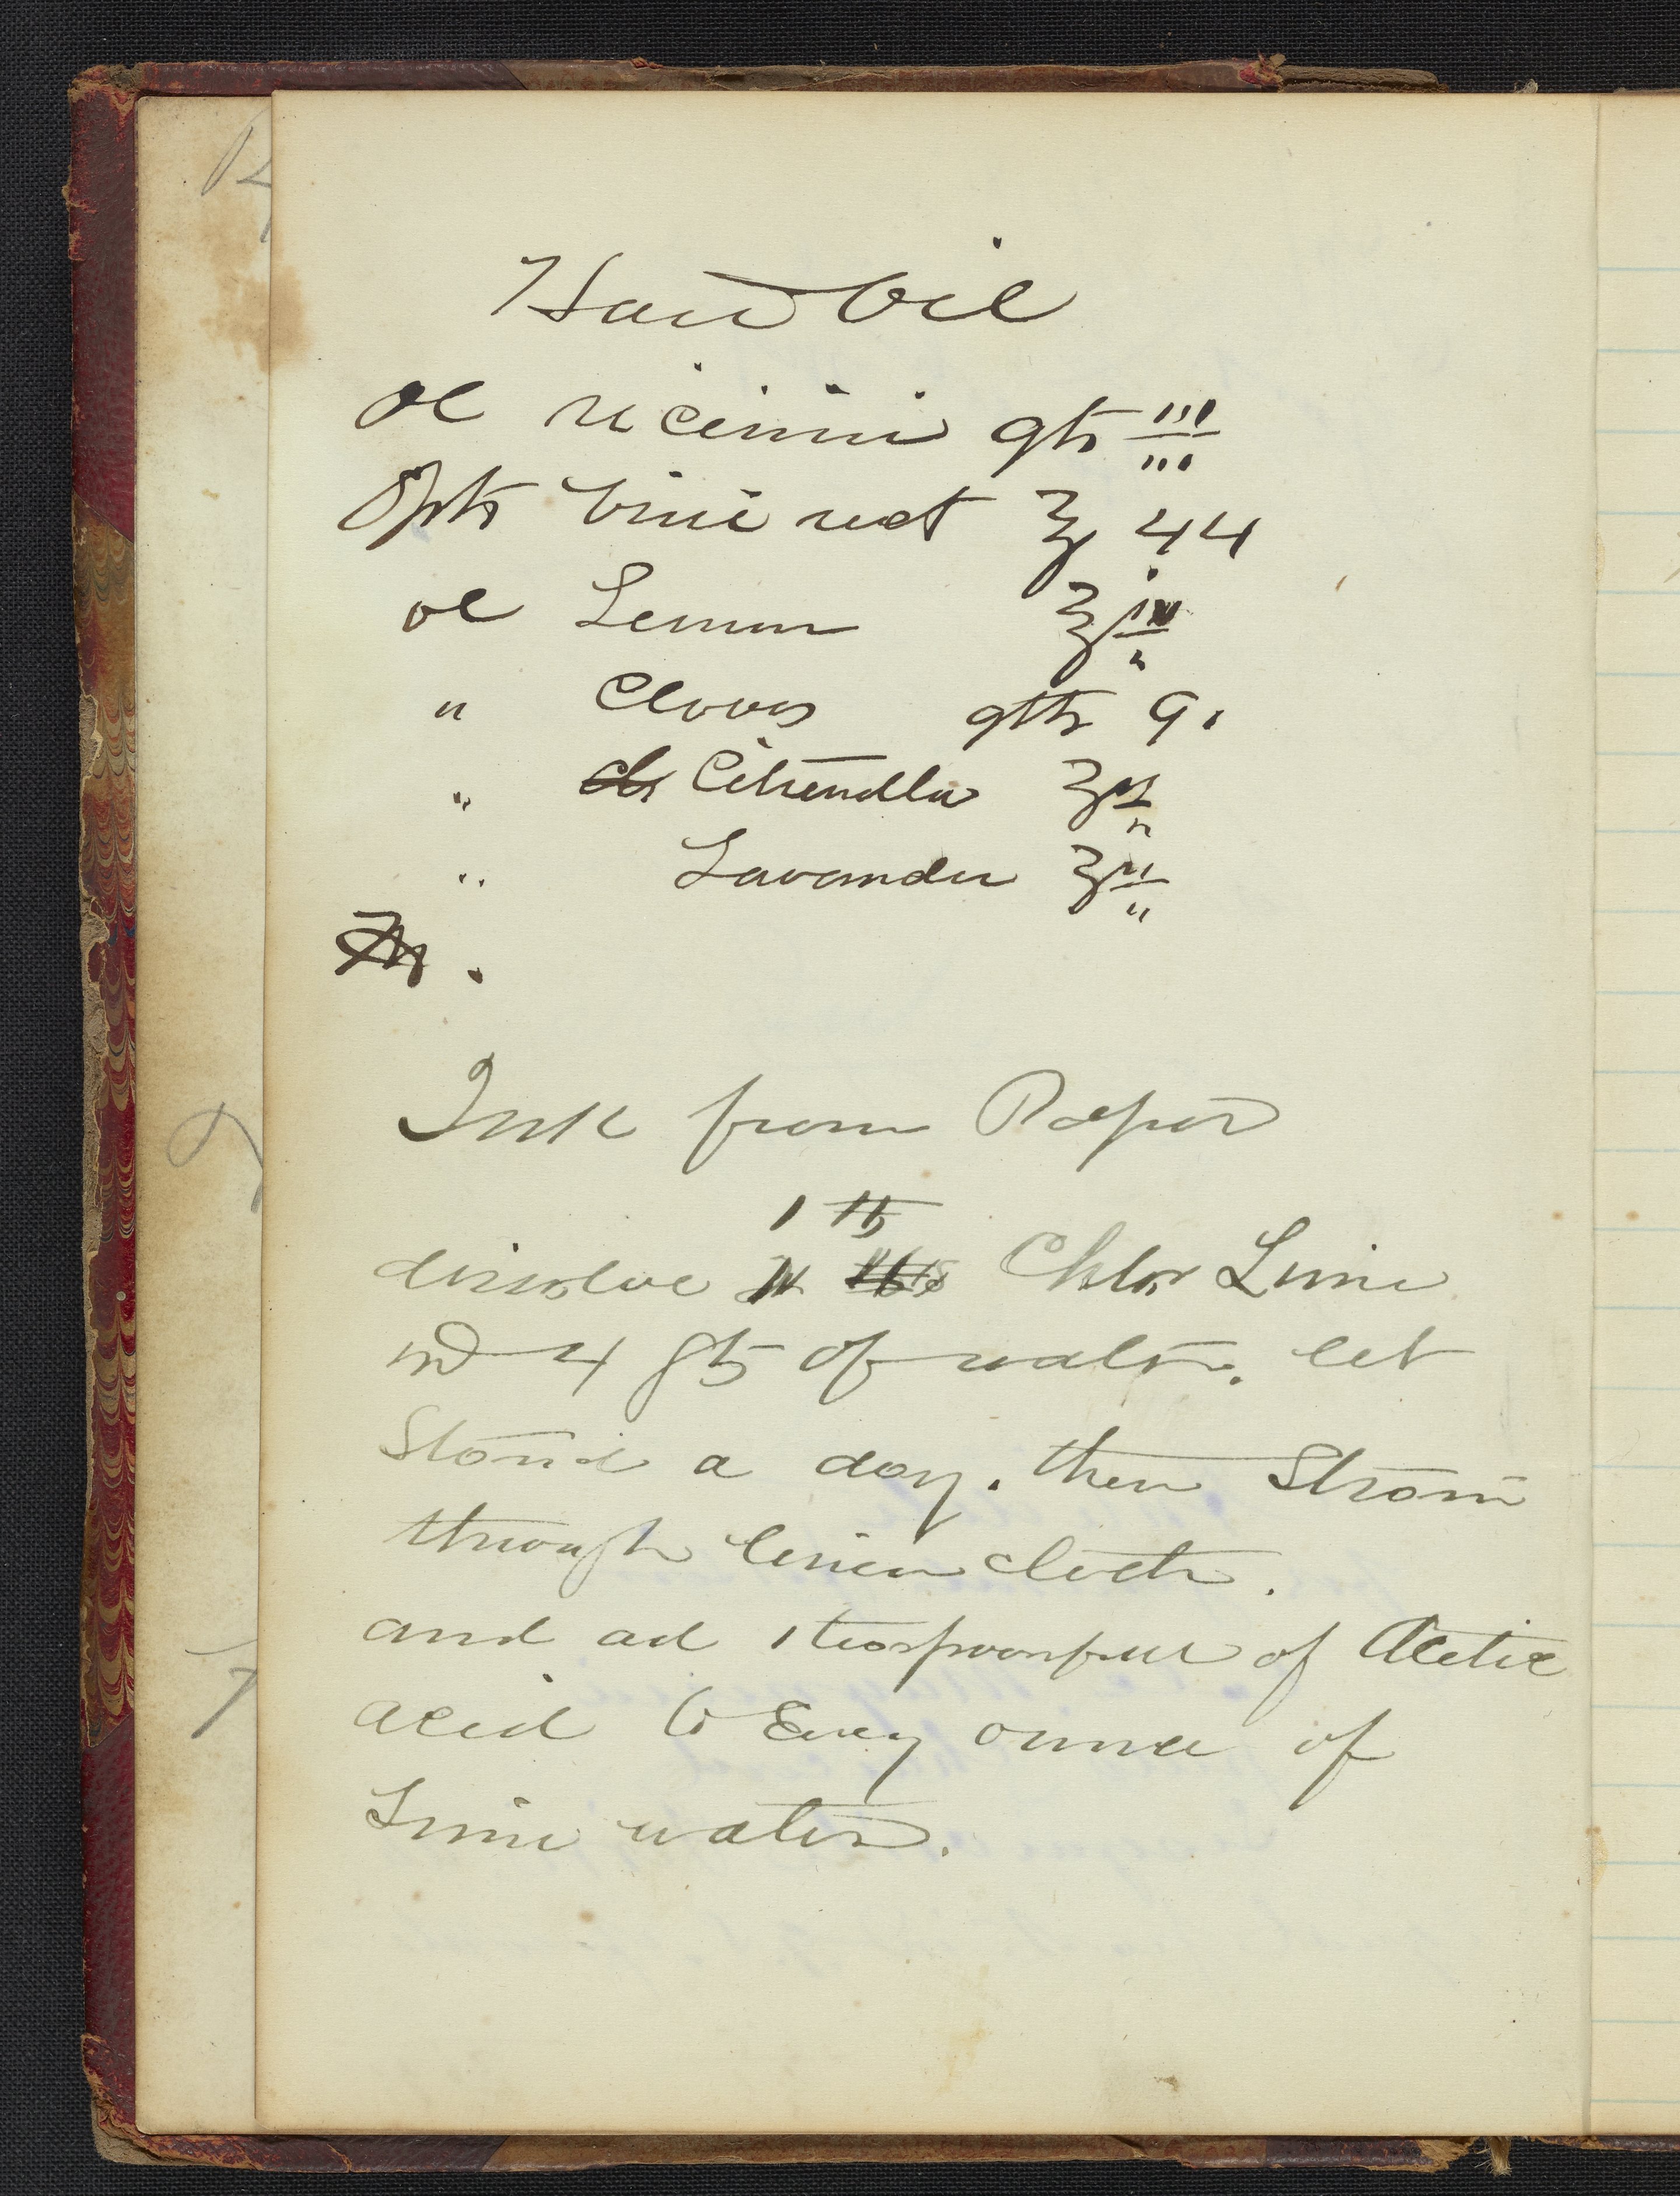 Hair Oil
Ol ricinii qts iii
Spts Vini rect ℥ 44
Ol Lemon ℥ iii
" Cloves gtts 90
" Citronella ℥ ii
" Lavander ℥ ii
M.
Ink from Paper
1 ℔
dissolve Chlor Lime
in 4 qts of water. let
Stand a day. then Strain
through linen cloth.
and ad 1 teaspoonful of Acetic
acid to Every ounce of
Lime water.